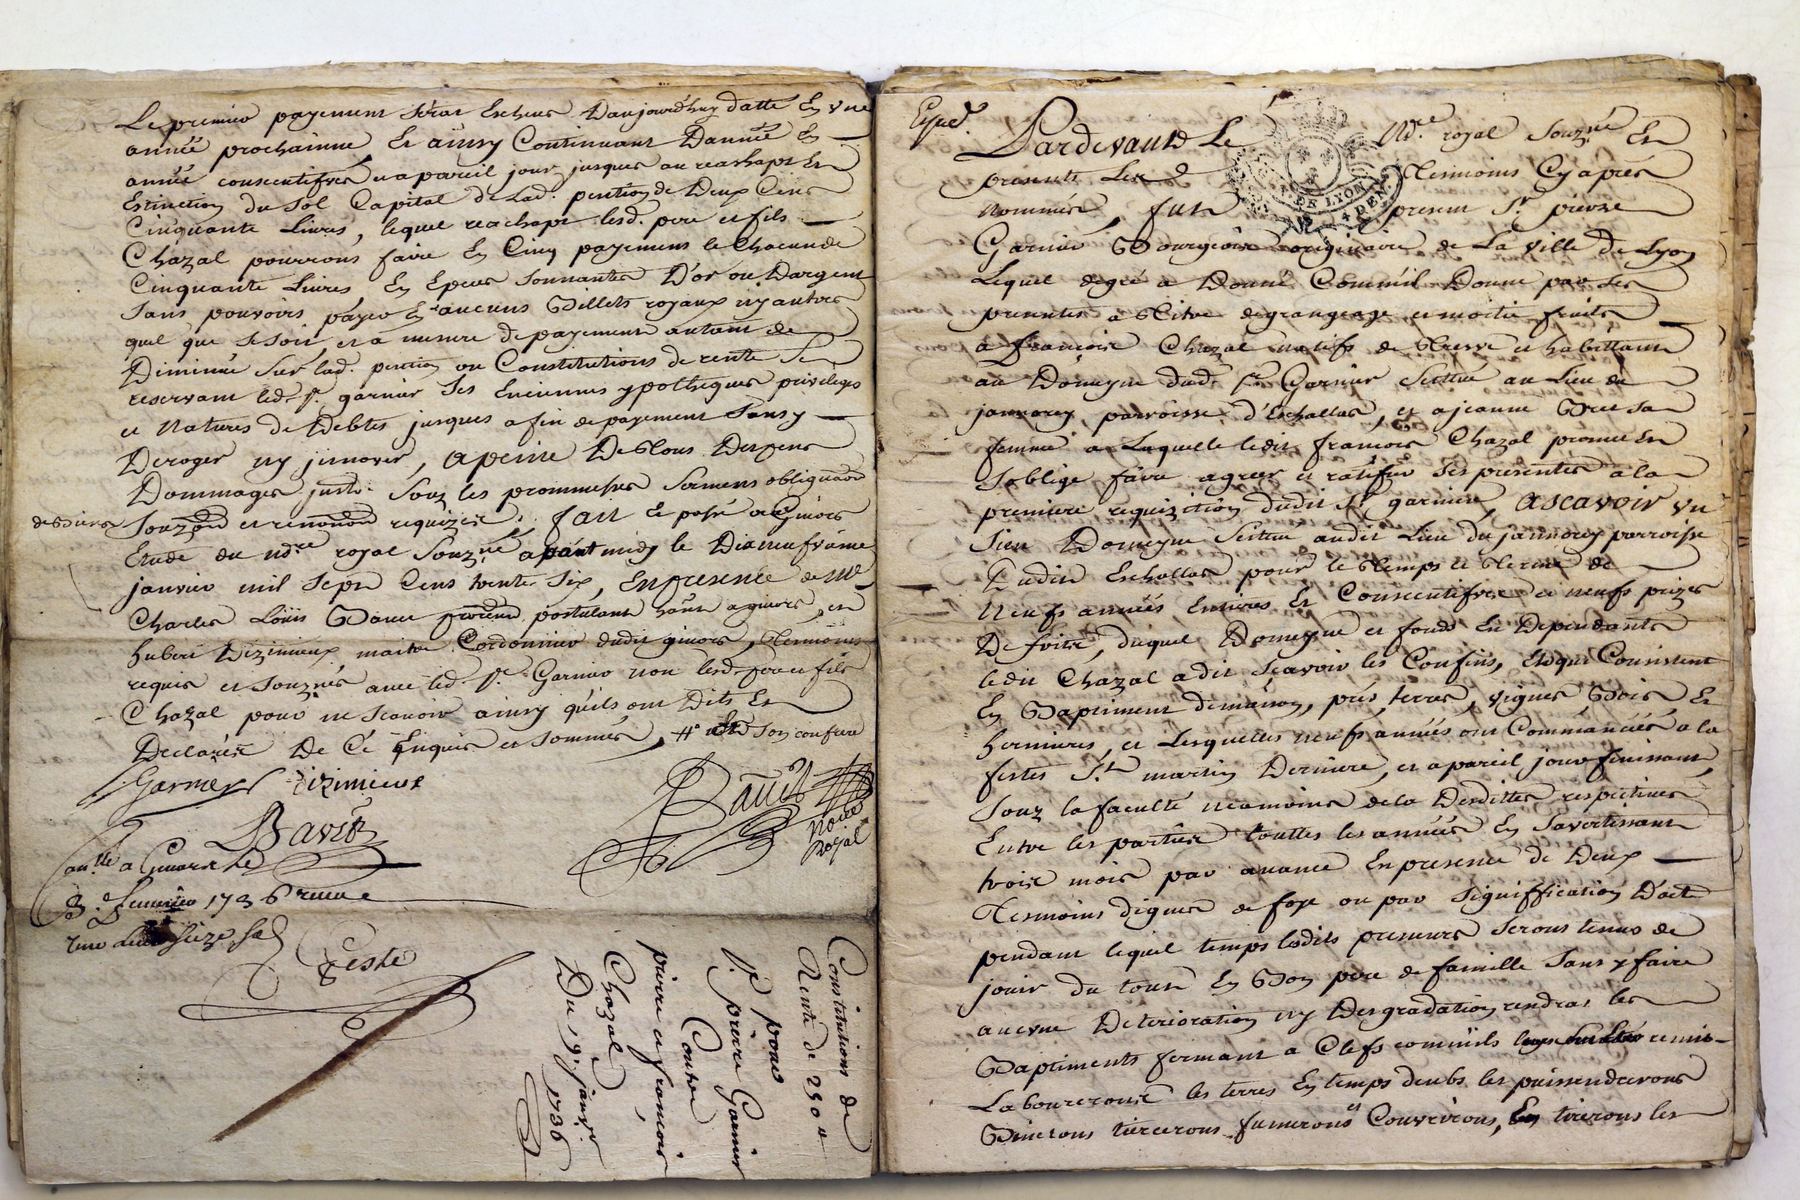 Le premier payement serat Escheus Daujourdhuy datte En une
année prochainne Et ainsy Continuant Dannée En
année consecutifves a pareil jour jusques au reachapt Et
Estinction du Sol Capital de Lad. pention de Deux Cens
Cinquante Livres, lequel reachapt lesd. pere et fils
Chazal pourrons faire En Cinq payemens de Chacun de
Cinquante Livres En Epeces sonnantes D'or ou Dargent
sans pouvoirs payer En aucuns Billets royaux ny autres
quel que se soit, et a mesure de payement autant de
Diminué sur lad. pention ou Constitutions de rente se
reservant led. Sr. garnier ses Enciennes ypotheques privileges
et Natures de Debtes jusques a fin de payement sans y
Deroger ny jnnover, apeine De Tous Despens
Dommages jnsts. Souz les prommesses sermens obligaons
des Biens
Souzons et renonons requizes, fait et passé a Givors
Etude du ndre royal Souzné apant midy le Dixneufvieme
janvier mil Sept Cens trente Six, En presence de Me
Charles Louis postulant a givors, et
hubert Dizimieux maitre Cordonnier dudit givors, Tesmoins
requis et Souznés avec led. Sr. Garnier non lesd. pere et fils
Chazal pour ne Scavoir ainsy quils ont Dits Et
Declarés De Ce Enquis et Sommés, son confrere
Garnier Dizimieux
Bavet
Bavet
Nore
Royal
a Givors le
3. Fevrier 1736 receu
Teste
Constitutions de
Rente de 250 ll
pour
Sr. pierre Garnier
Contre
pierre et francois
Chazal
Du 19e. janvr.
1736
Expéd.
Pardevant Le Ndre. royal Souzné Et
presente Les Tesmoins Cy après
Nommés, fut present Sr. pierre
Garnier Bourgeois originaire de La ville de Lyon
Lequel degré a Donné Comm'il Donne par Ses
presentes a Titre de grangeage et moitié fruits
a francois Chazal natifs de et habittant
au Domeyne dud. Sr. Garnier Scittué au Lieu de
jannorey, parroisse d'Eschallas, et a jeanne sa
femme a Laquelle ledit francois Chazal promet Et
s'oblige faire agreer et ratifier Ses presentes a la
premiere requizition dudit Sr. garnier, ascavoir un
Sien Domeyne Scittué audit Lieu du jannorey parroisse
Dudit Eschallas pour le Temps et Terme de
Neufs années Entieres Et Consecutifves et neufs prizes
De fruits, duquel Domeyne et fonds En Dependants
ledit Chazal a dit Scavoir les Confins, Etoqui Consistent
En Baptiment demaison, prés, terres, vignes, Bois, Et
hermieres, et Lesquelles neufs années ont Commancées a la
festes St. martin Derniere, et a pareil jour finissant,
Souz la faculté neamoins de la Deditte respective
Entre les parties touttes les années En Savertissant
trois mois par avance En presence de Deux
Tesmoins dignes de foye ou par Signiffication D'acte
pendant lequel temps lesdits preneurs Serons tenus de
jouir du tout En Bon pere de famille Sans y faire
aucune Deterioration ny Desgradation rendras les
Baptiments fermant a Clefs comm'ils remis
Labourerons les terres En temps deubs les
Binerons tiercerons fumerons et Couvrirons, En tirerons les
G. DE LYON
4 DEN